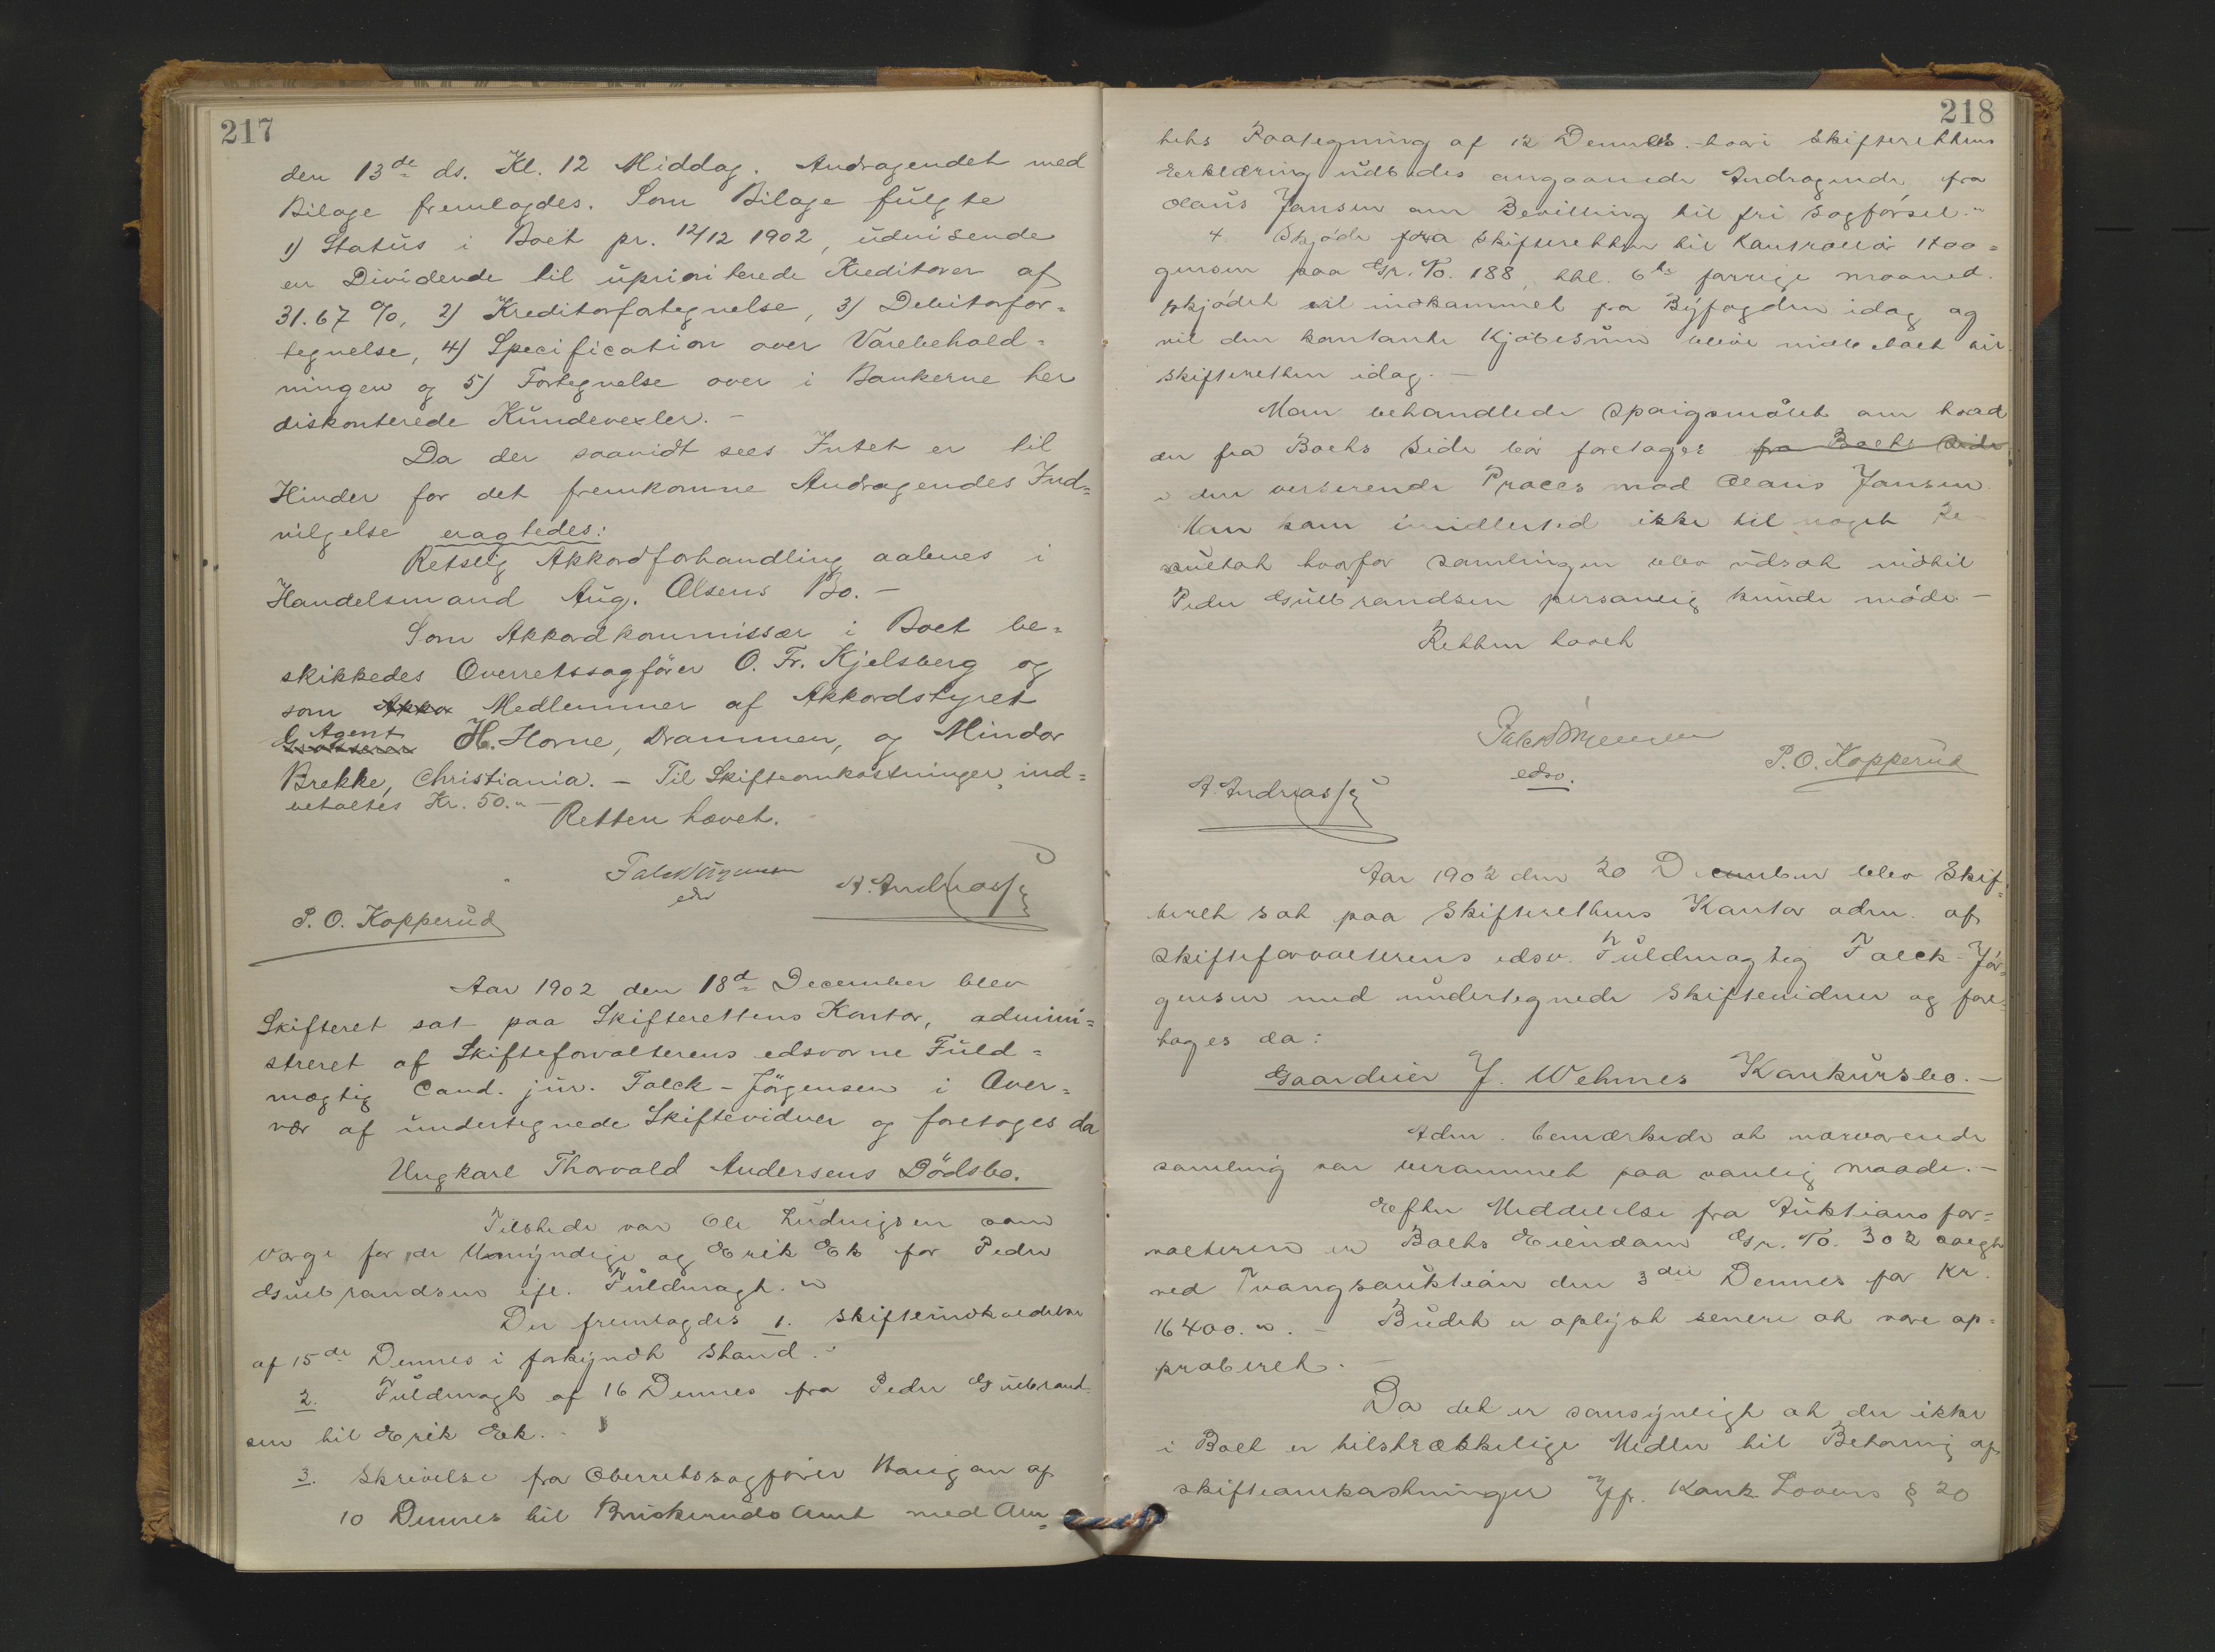 217
den 13de ds. Kl. 12 Middag. Andragendet med
Bilage fremlagdes. Som Bilage fulgte
1) Status i Boet pr. 12/12 1902, udvisende
en Dividende til uprioriterede Kreditorer af
31.67 %, 2) Kreditorfortegnelse, 3) Debitorfor=
tegnelse, 4) Specification over Varebehold=
ningen og 5) Fortegnelse over i Bankerne her
diskonterede Kundevexler. -
Da der saavidt sees Intet er til
Hinder for det fremkomne Andragendes Ind=
vilgelse eragtedes:
Retslig Akkordforhandling aabnes i
Handelsmand Aug. Olsens Bo. -
Som Akkordkommissær i Boet be=
skikkedes Overretssagfører O. Fr. Kjelsberg og
som Akko Medlemmer af Akkordstyret
Agent
H. Horne, Drammen, og Mindor
Brekke, Christiania. - Til Skifteomkostninger ind=
betaltes Kr. 50." -
Retten hævet.
Falck Jørgensen
edsv
A. Andreass
P. O. Kopperud
Aar 1902 den 18de December blev
Skifteret sat paa Skifterettens Kontor, admini=
streret af Skifteforvalterens edsvorne Fuld=
mægtig Cand. jur. Falck-Jørgensen i Over=
vær af undertegnede Skiftevidner og foretoges da
Ungkarl Thorvald Andersens Dødsbo.
Tilstede var Ole Ludvigsen som
Værge for de Umyndige og Erik Ek for Peder
Gulbrandsen ifl. Fuldmagt. "
Der fremlagdes 1. Skifteindkaldelse
af 15de Dennes i forkyndt Stand. -
2. Fuldmagt af 16 Dennes fra Peder Gulbrand
sen til Erik Ek. -
3. Skrivelse fra Overretssagfører Haugan af
10 Dennes til Buskeruds Amt med Am=
218
tets Paategning af 12 Dennes. - hvori Skifterettens
Erklæring udbedes angaaende Andragende fra
Olaus Jansen om Bevilling til fri Sagførsel. "
4. Skjøde fra Skifteretten til Kontrollør Haa=
gensen paa Gr. No. 188, thl. 6te forrige Maaned.
Skjødet vil indkommet fra Byfogden idag og
vil den kontante Kjøbesum blive indbetalt til
Skifteretten idag. -
Man behandlede Spørgsmålet om hvad
der fra Boets Side bør foretages fra Boets Side
i den verserende Proces mod Olaus Jansen.
Man kom imidlertid ikke til noget Re
sultat hvorfor Samlingen blev udsat indtil
Peder Gulbrandsen personlig kunde møde -
Retten hævet
Falck Jørgensen
edsv.
P. O. Kopperud
A. Andreass
Aar 1902 den 20 December blev Skif=
teret sat paa Skifterettens Kontor adm. af
Skifteforvalterens edsv. Fuldmægtig Falck-Jør=
gensen med undertegnede Skiftevidner og fore=
toges da:
Gaardeier J. Wehmes Konkursbo. -
Adm. bemærkede at nærværende
Samling var berammet paa vanlig Maade. -
Efter Meddelelse fra Auktionsfor=
valteren er Boets Eiendom Gr. No. 302 solgt
ved Tvangsauktion den 3die Dennes for Kr.
16400. ". - Budet er oplyst senere at være ap=
proberet. -
Da det er sansynligt at der ikke
i Boet er tilstrækkelige Midler til Betaling af
Skifteomkostninger Jfr. Konk. Lovens § 20